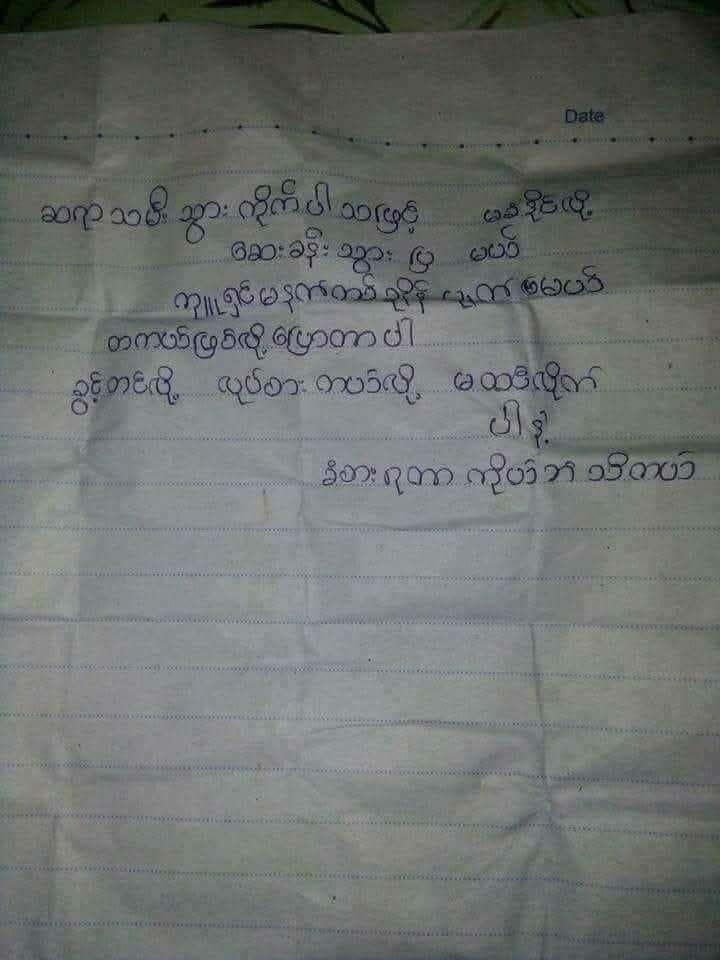 Date
ဆရာ သမီး သွား ကိုက် ပါ သဖြင့် မခံနိုင်လို့
ဆေးခန်း သွား ပြ မယ်
ကျူရှင် မနက် တစ်
တကယ်ဖြစ်လို့ ပြောတာ ပါ
ခွင့်တင်လို့ လုပ်စား တယ်လို့ မထင်လိုက်
ပါ နဲ့
ခံစား ရတာ ကိုယ် ဘဲ သိ တယ်